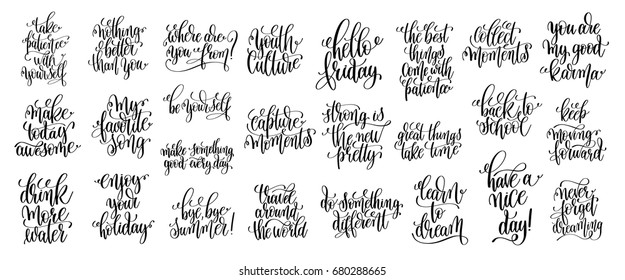 take
patience
with
yourself
nothing
better
than you
where are
you from?
youth
culture
hello
friday
the best
things
come with
patience
collect
moments
you are
my good
karma
make
today
awesome
my
favorite
song
be yourself
make something
good every day
capture
moments
strong is
the new
pretty
great things
take time
back to
school
keep
moving
forward
drink
more
water
enjoy
your
holidays
bye, bye
summer!
travel
around
the world
do something
different
learn
to
dream
have a
nice
day!
never
forget
dreaming
shutterstock.com · 680288665